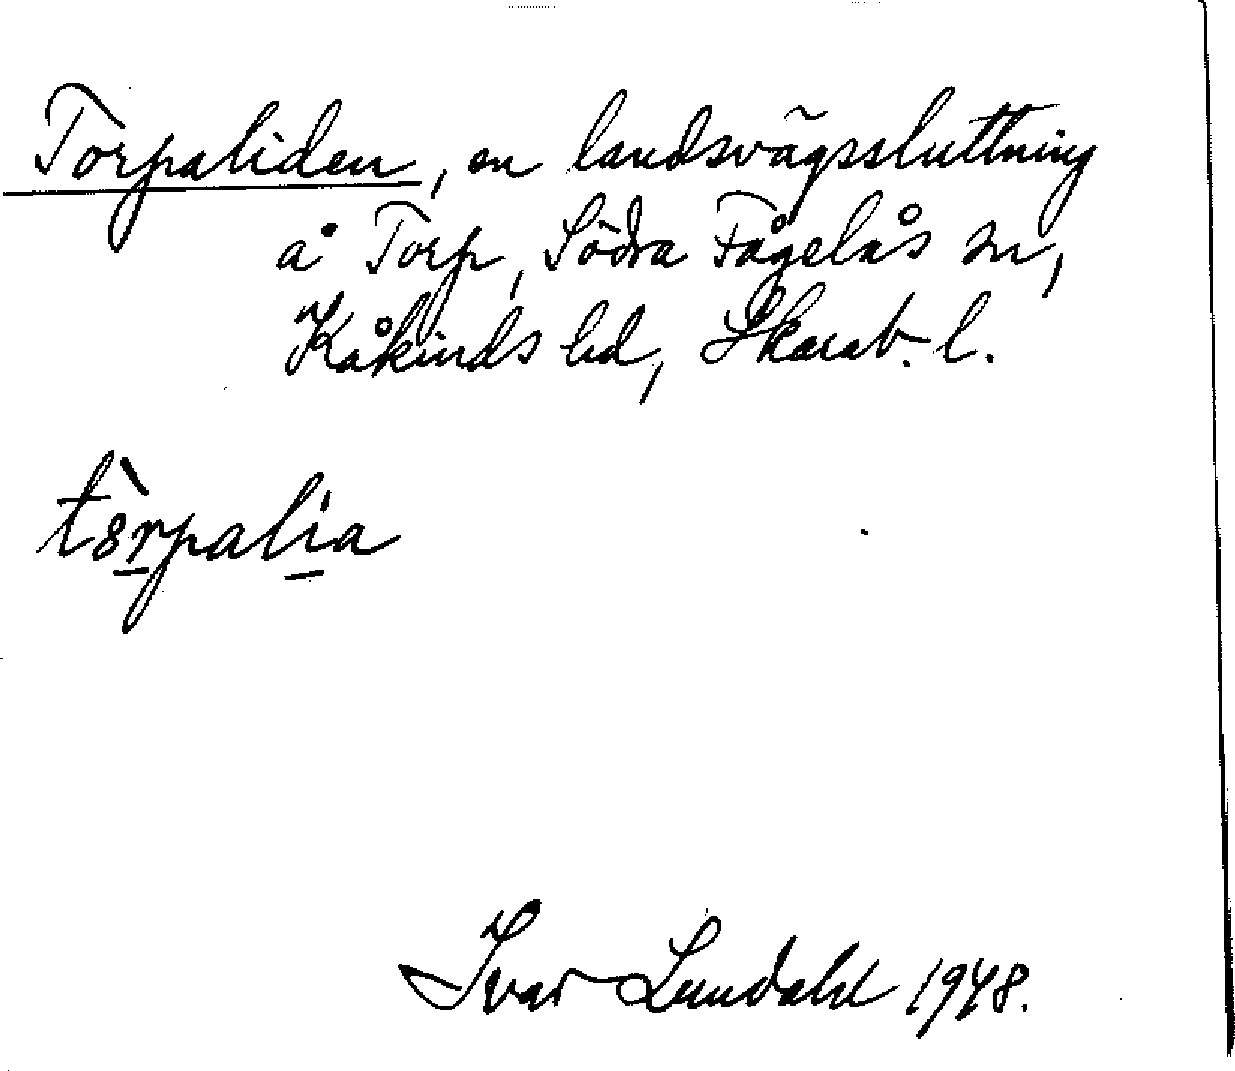 Torpaliden, en landsvägssluttning
å Torp, Södra Fågelås sn,
Kåkinds hd, Skarab. l.
tȯ̀rpalia
Ivar Lundahl 1948.